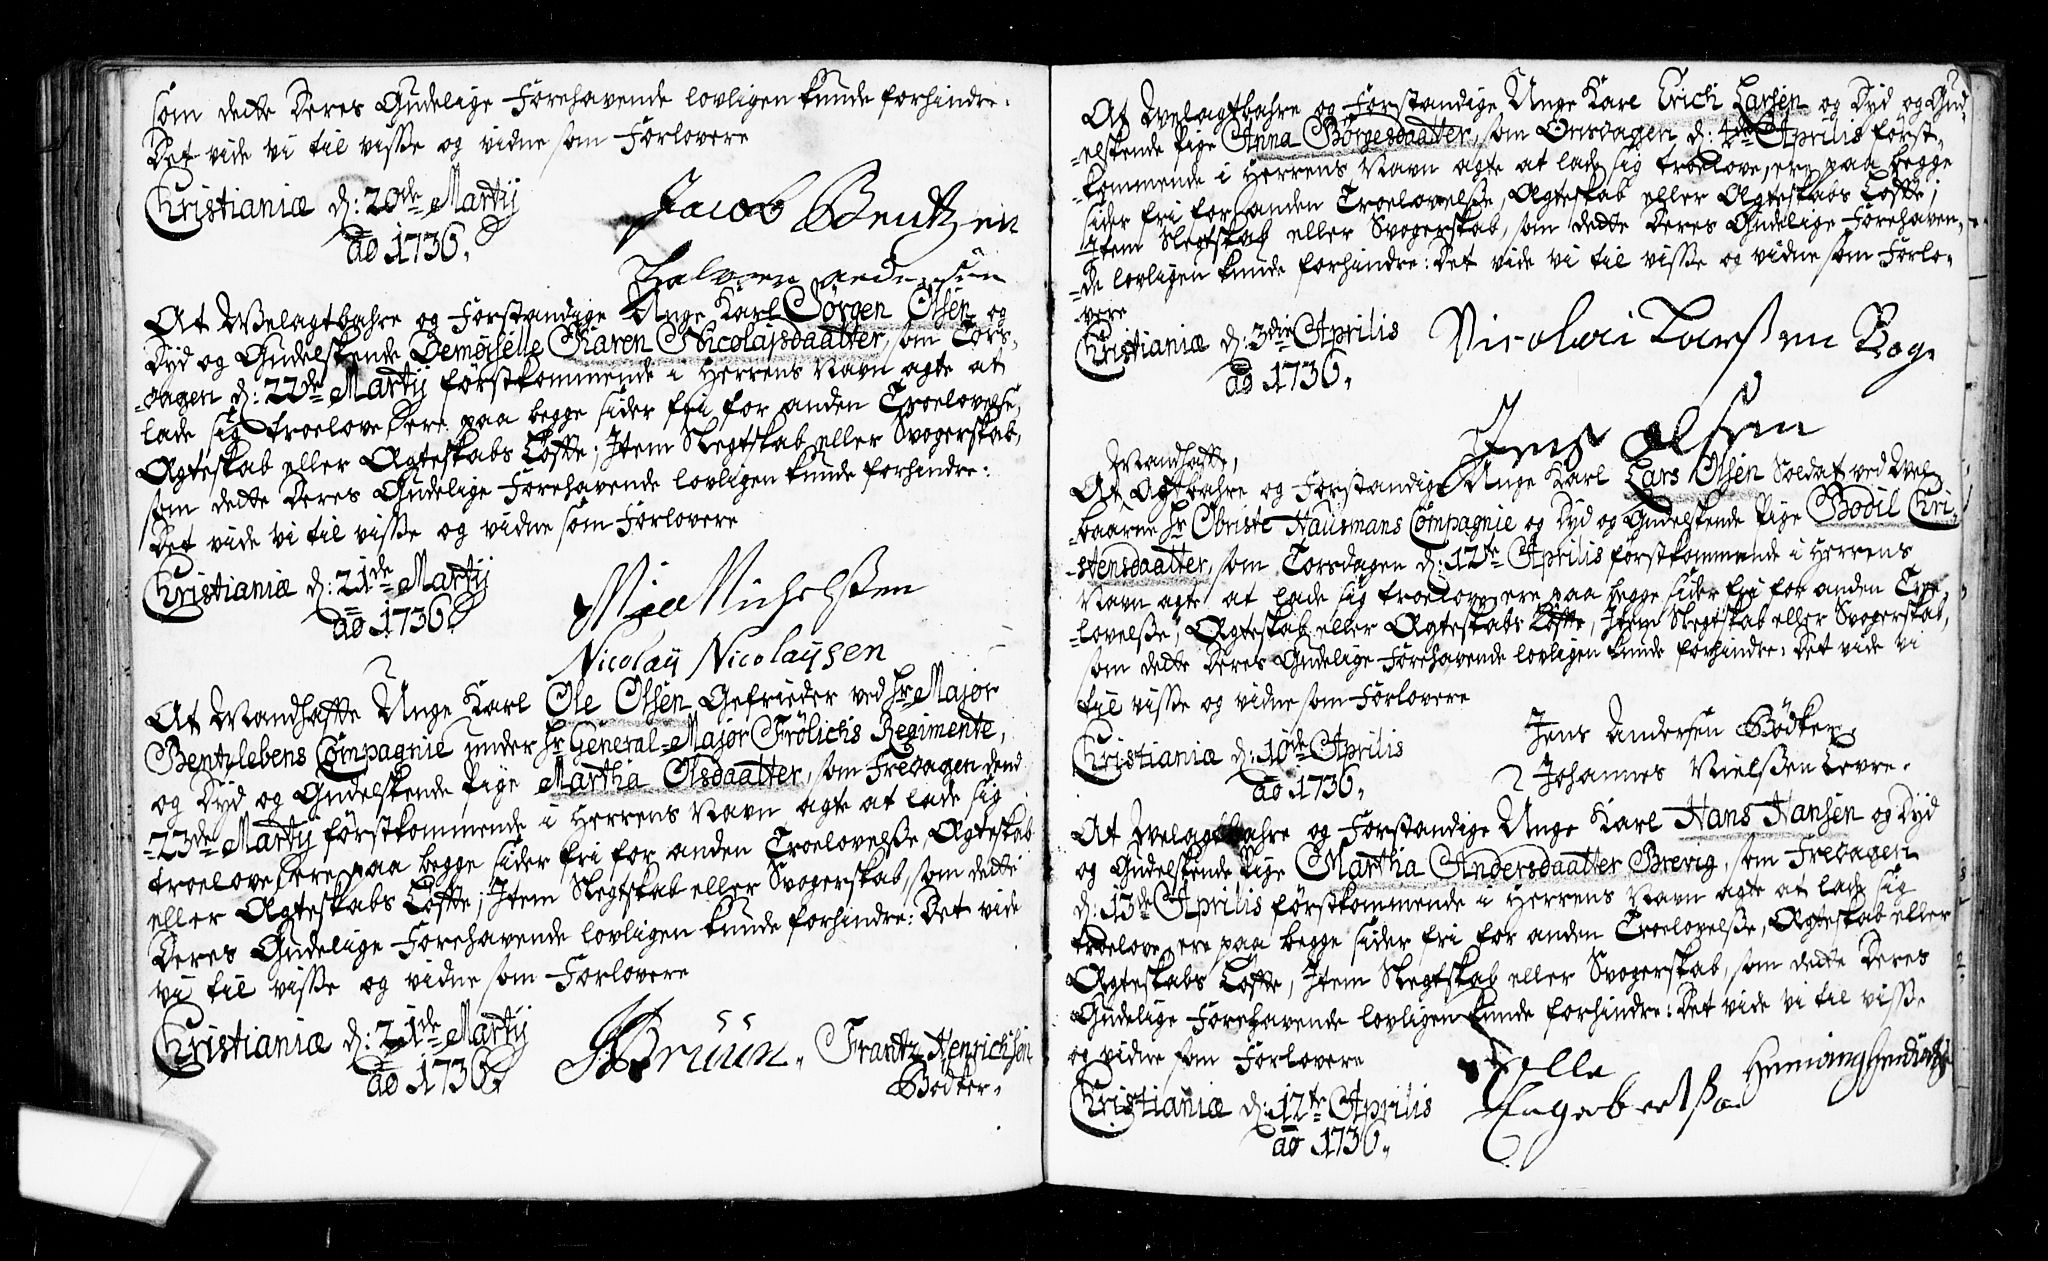 som dette Deres Gudelige Forehavende lovligen kunde forhindre.
Det vide vi til visse og vidne som Forlovere
Christianiæ d: 20de Martij
ao 1736.
Jacob Bentzen
Halvor andersen
At Welagtbahre og Forstandige Unge Karl Jørgen Olsen og
Dyd og Gudelskende Demoiselle Karen Nicolajsdaatter, som Tors-
-dagen d: 22de Martij førstkommende i Herrens Navn agte at
lade sig troelove, ere paa begge sider fri for anden Troelovelse,
Ægteskab eller Ægteskabs Løffte; Item Slegtskab eller Svogerskab,
som dette Deres Gudelige Forehavende lovligen kunde forhindre:
Det vide vi til visse og vidne som Forlovere
Christianiæ d: 21de Martij
ao 1736.
Nichelssen
Nicolaij Nicolaijsen
At Mandhaffte Unge Karl Ole Olsen Gefrieder ved Hr Major
Bentzlebens Compagnie under Hr General-Major Frölichs Regimente,
og Dyd og Gudelskende Pige Martha Olsdaatter, som Fredagen dend
23de Martij førstkommende i Herrens Navn agte at lade sig
troelove, ere paa begge sider fri for anden Troelovelsse, Ægteskab
eller Ægteskabs Løffte; Item Slegtskab eller Svogerskab, som dette
Deres Gudelige Forehavende lovligen kunde forhindre: Det vide
vi til visse og vidne som Forlovere
Christianiæ d: 21de Martij
ao 1736.
Brüün.
Frantz Henrichsen
Bødker.
At Welagtbahre og Forstandige Unge Karl Erich Larsen og Dyd og Gud-
-elskende Pige Anna Börgesdaatter, som Onsdagen d: 4de Aprilis først-
-kommende i Herrens Navn agte at lade sig troelove, ere paa begge
sider fri for anden Troelovelsse, Ægteskab eller Ægteskabs Løffte;
Item Slegtskab eller Svogerskab, som dette Deres Gudelige Forehaven-
-de lovligen kunde forhindre: Det vide vi til visse og vidne som Forlo-
-vere
Christianiæ d: 3die Aprilis
ao 1736.
Nicolai Larssen
Jens olsen
Mandhaffte,
At Agtbahre og Forstandige Unge Karl Lars Olsen Soldat ved Wel-
-baarne Hr Obriste Hausmans Compagnie og Dyd og Gudelskende Pige Bodil Chri-
-stensdaatter, som Torsdagen d: 12te Aprilis førstkommende i Herrens
Navn agte at lade sig troelove, ere paa begge sider fri for anden Troe-
-lovelsse, Ægteskab eller Ægteskabs Løffte, Item Slegtskab eller Svogerskab,
som dette Deres Gudelige Forehavende lovligen kunde forhindre: Det vide vi
til visse og vidne som Forlovere
Christianiæ d: 10de Aprilis
ao 1736.
Jens Andersen Bødker.
Johannes Nielssen
At Welagtbahre og Forstandige Unge Karl Hans Hansen og Dyd
og Gudelskende Pige Martha Andersdaatter Brevig, som Fredagen
d: 13de Aprilis førstkommende i Herrens Navn agte at lade sig
troelove, ere paa begge sider fri for anden Troelovelsse, Ægteskab eller
Ægteskabs Løffte, Item Slegtskab eller Svogerskab, som dette Deres
Gudelige Forehavende lovligen kunde forhindre: Det vide vi til visse
og vidne som Forlovere
Christianiæ d: 12te Aprilis
ao 1736.